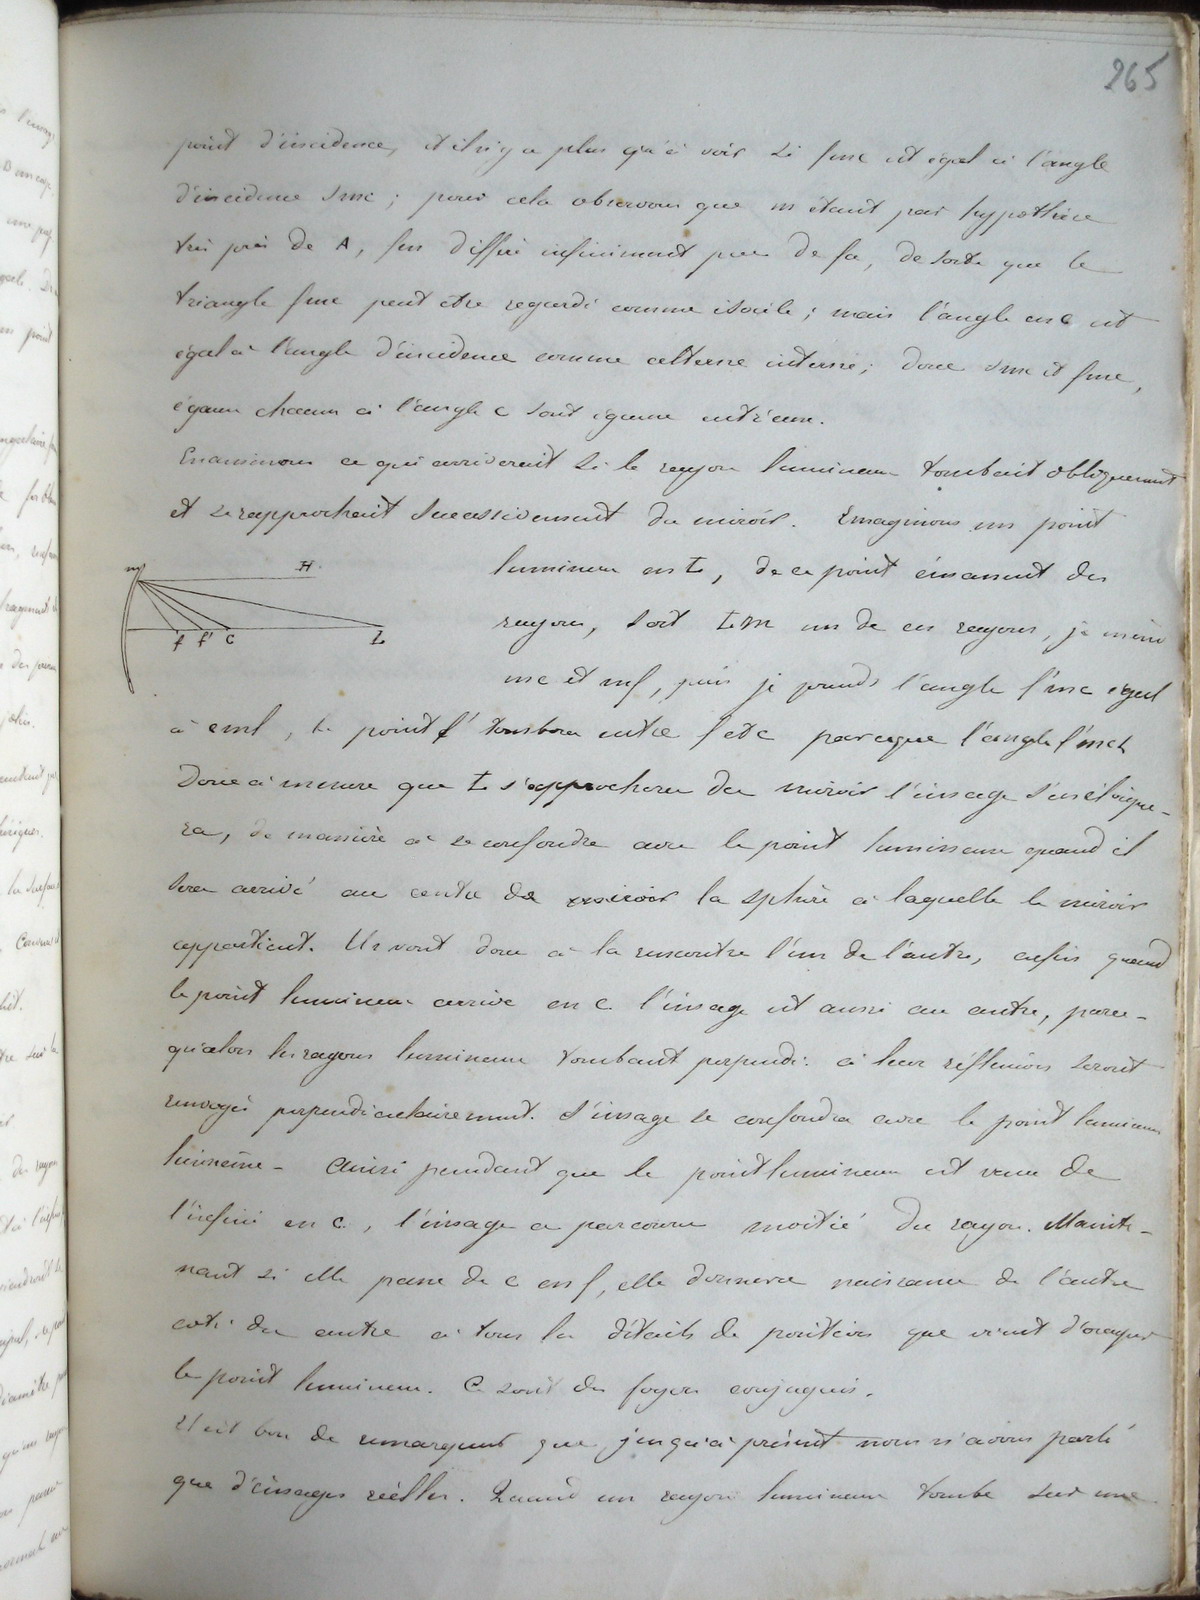 265
point d'incidence, et il n'y a plus qu'à voir si fmc est égal à l'angle
d'incidence Smc ; pour cela observons que m étant par hypothèse
très près de A, fm diffère infiniment peu de fa, de sorte que le
triangle fmc peut être regardé comme isocèle ; mais l'angle en C est
égal à l'angle d'incidence comme alterne interne ; donc Smc et fmc,
égaux chacun à l'angle C sont égaux entr'eux.
Examinons ce qui arriverait si le rayon lumineux tombait obliquement
et se rapprochait successivement du miroir. Imaginons un point
lumineux en L, de ce point émanent des
rayons, soit Lm un de ces rayons, je mène
mc et mf, puis je prends l'angle f'mc égal
à cml, le point f' tombera entre f et c parceque l'angle f'mc
m H
f f' C L
Donc à mesure que L s'approchera du miroir l'image s'en éloigne-
ra, de manière à se confondre avec le point lumineux quand il
sera arrivé au centre de la sphère à laquelle le miroir
appartient. Ils vont donc à la rencontre l'un de l'autre, enfin quand
le point lumineux arrive en C l'image est aussi au centre, parce-
qu'alors les rayons lumineux tombant perpendi: à leur réflexion seront
renvoyés perpendiculairement. L'image se confondra avec le point lumineux
lui même - Ainsi pendant que le point lumineux est venu de
l'infini en C, l'image a parcouru moitié du rayon. Mainte-
nant si elle passe de C en f, elle donnera naissance de l'autre
côté du centre à tous les détails de position que vient d'occuper
le point lumineux. Ce sont des foyers conjugués.
Il est bon de remarquer que jusqu'à présent nous n'avons parlé
que d'images réelles. Quand un rayon lumineux tombe sur une